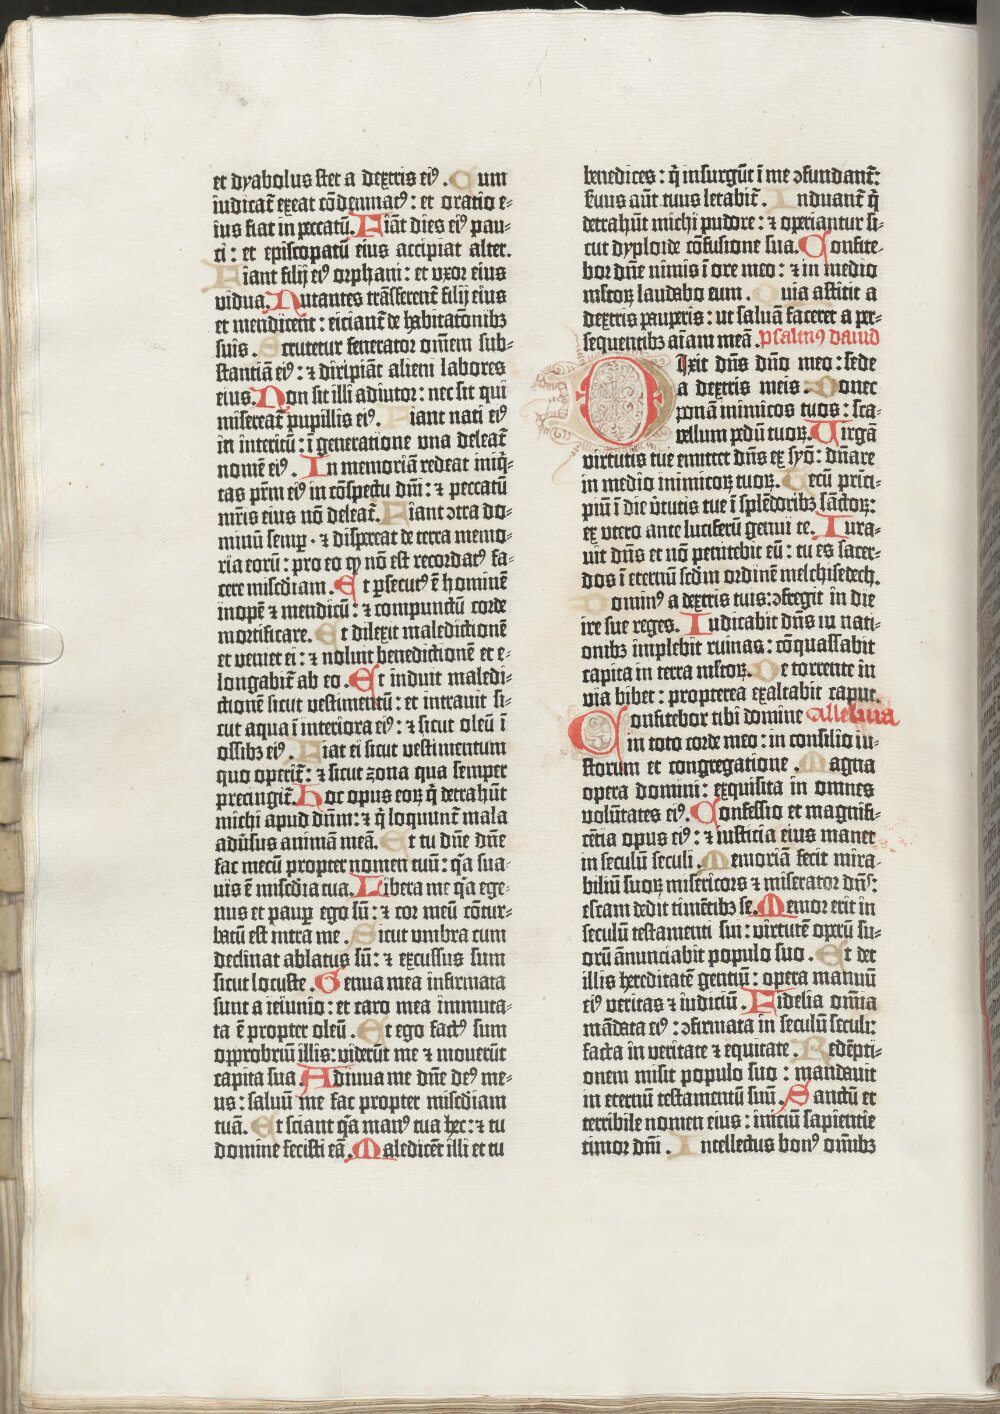 et dyabolus stet a dextris eiꝰ. Cum
iudicat̃ exeat cõdemnatꝰ: et oratio e⸗
ius fiat in peccatũ. Fiãt dies eiꝰ pau⸗
ci: et episcopatũ eius accipiat alter.
Fiant filij eiꝰ orphani: et vxor eius
vidua. Nutantes trãsferent̃ filij eius
et mendicent: eiciant̃ de habitatõnibꝫ
suis. Scrutetur fenerator om̃em sub⸗
stantiã eiꝰ: ⁊ diripiãt alieni labores
eius. Non sit illi adiutor: nec sit qui
misereat̃ pupillis eiꝰ. Fiant nati eiꝰ
in interitũ: ĩ generatione vna deleat̃
nomẽ eiꝰ. In memoriã redeat iniq̃⸗
tas prm̃ eiꝰ in cõspectu dm̃i: ⁊ peccatũ
mr̃is eius nõ deleat̃. Fiant ↄtra do⸗
minũ semꝑ. ⁊ dispereat de terra memo⸗
ria eorũ: pro eo ꝙ nõ est recordatꝰ fa⸗
cere misc̃diam. Et ꝑsecutꝰ ẽ hominẽ
inopẽ ⁊ mendicũ: ⁊ compunctũ corde
mortificare. Et dilexit maledictionẽ
et veniet ei: ⁊ noluit benedictionẽ et e⸗
longabit̃ ab eo. Et induit maledi⸗
ctionẽ sicut vestimentũ: et intrauit si⸗
cut aqua ĩ interiora eiꝰ: ⁊ sicut oleũ ĩ
ossibꝫ eiꝰ. Fiat ei sicut vestimentum
quo operit̃: ⁊ sicut zona qua semper
precingit̃. Hoc opus eoꝝ q̃ detrahũt
michi apud dñm: ⁊ q̃ loquunt̃ mala
adũsus animã meã. Et tu dñe dñe
fac mecũ propter nomen tuũ: q̃a sua⸗
uis ẽ misc̃dia tua. Libera me q̃a ege⸗
nus et pauꝑ ego sũ: ⁊ cor meũ cõtur⸗
batũ est intra me. Sicut umbra cum
declinat ablatus sũ: ⁊ excussus sum
sicut locuste. Genua mea infirmata
sunt a ieiunio: et caro mea immuta⸗
ta ẽ propter oleũ. Et ego factꝰ sum
opprobriũ illis: viderũt me ⁊ mouerũt
capita sua. Adiuua me dñe deꝰ me⸗
us: saluũ me fac propter misc̃diam
tuã. Et sciant q̃a manꝰ tua hec: ⁊ tu
domine fecisti eã. Maledicẽt illi et tu
benedices: q̃ insurgũt ĩ me ↄfundant̃:
s̃uus aũt tuus letabit̃. Induant̃ q̃
detrahũt michi pudore: ⁊ operiantur si⸗
cut dyploide cõfusione sua. Confite⸗
bor dñe nimis ĩ ore meo: ⁊ in medio
mltoꝝ laudabo eum. Quia astitit a
dextris pauperis: ut saluã faceret a per⸗
sequentibꝫ aĩam meã. psalmꝰ dauid
Dixit dñs dño meo: sede
a dextris meis. Donec
ponã inimicos tuos: sca⸗
bellum pedũ tuoꝝ. Virgã
virtutis tue emittet dñs ex syõ: dñare
in medio inimicoꝝ tuoꝝ. Tecũ prĩci⸗
piũ ĩ die ṽtutis tue ĩ splẽdoribꝫ sãctoꝝ:
ex vtero ante luciferũ genui te. Iura⸗
uit dñs et nõ penitebit eũ: tu es sacer⸗
dos ĩ eternũ sc̃dm ordinẽ melchisedech.
Dominꝰ a dextris tuis: ↄfregit in die
ire sue reges. Iudicabit dñs in nati⸗
onibꝫ implebit ruinas: cõquassabit
capita in terra mltoꝝ. De torrente in
via bibet: propterea exaltabit caput.
Confitebor tibi domine Alleluia
in toto corde meo: in consilio iu⸗
storum et congregatione. Magna
opera domini: exquisita in omnes
volũtates eiꝰ. Confessio et magnifi⸗
cẽtia opus eiꝰ: ⁊ iusticia eius manet
in seculũ seculi. Memoriã fecit mira⸗
biliũ suoꝝ misericors ⁊ miserator dñs:
escam dedit timẽtibꝫ se. Memor erit in
seculũ testamenti sui: virtutẽ operũ su⸗
orũ ãnunciabit populo suo. Et det
illis hereditatẽ gentiũ: opera manuũ
eiꝰ veritas ⁊ iudiciũ. Fidelia om̃ia
mãdata eiꝰ: ↄfirmata in seculũ seculi:
facta in veritate ⁊ equitate. Redẽpti⸗
onem misit populo suo: mandauit
in eternũ testamentũ suũ. Sanctũ et
terribile nomen eius: iniciũ sapientie
timor dm̃i. Intellectus bonꝰ om̃ibꝫ